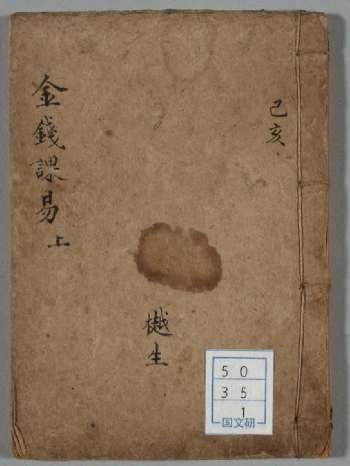 己亥
金錢課易 上
樾生
50
35
1
国文研